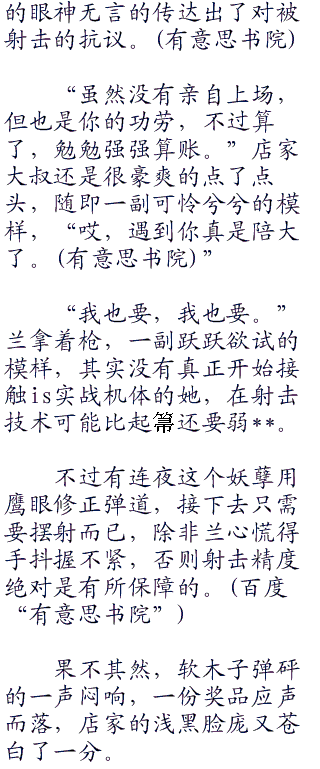 的眼神无言的传达出了对被
射击的抗议。(有意思书院)
“虽然没有亲自上场，
但也是你的功劳，不过算
了，勉勉强强算账。”店家
大叔还是很豪爽的点了点
头，随即一副可怜兮兮的模
样，“哎，遇到你真是陪大
了。(有意思书院)”
“我也要，我也要。”
兰拿着枪，一副跃跃欲试的
模样，其实没有真正开始接
触is实战机体的她，在射击
技术可能比起箒还要弱**。
不过有连夜这个妖孽用
鹰眼修正弹道，接下去只需
要摆射而已，除非兰心慌得
手抖握不紧，否则射击精度
绝对是有所保障的。(百度
“有意思书院”)
果不其然，软木子弹砰
的一声闷响，一份奖品应声
而落，店家的浅黑脸庞又苍
白了一分。